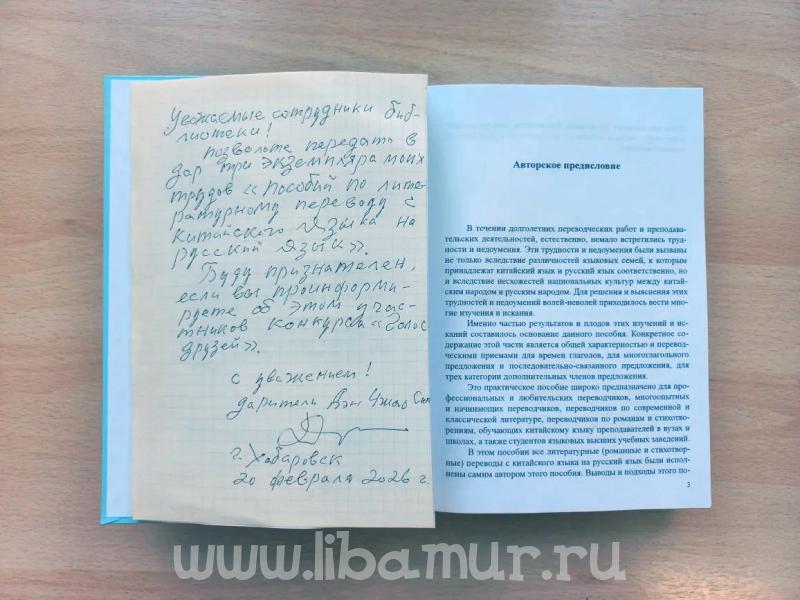 Уважаемые сотрудники биб-
лиотеки!
позвольте передать в
дар три экземпляра моих
трудов «Пособий по лите-
ратурному переводу с
китайского языка на
русский язык».
Буду признателен,
если вы проинформи-
руете об этом участ-
тников конкурса «Голос
друзей».
с уважением!
даритель Дэн
г. Хабаровск
20 февраля 2026 г.
Авторское предисловие
В течении долголетних переводческих работ и преподава-
тельских деятельностей, естественно, немало встретились труд-
ности и недоумения. Эти трудности и недоумения были вызваны
не только вследствие различностей языковых семей, к которым
принадлежат китайский язык и русский язык соответственно, но
и вследствие несхожестей национальных культур между китай-
ским народом и русским народом. Для решения и выяснения этих
трудностей и недоумений волей-неволей приходилось вести мно-
гие изучения и искания.
Именно частью результатов и плодов этих изучений и ис-
каний составилось основание данного пособия. Конкретное со-
держание этой части является общей характерностью и перевод-
ческими приемами для времен глаголов, для многоглагольного
предложения и последовательно-связанного предложения, для
трех категории дополнительных членов предложения.
Это практическое пособие широко предназначено для про-
фессиональных и любительских переводчиков, многоопытных
и начинающих переводчиков, переводчиков по современной и
классической литературе, переводчиков по романам и стихотво-
рениям, обучающих китайскому языку преподавателей в вузах и
школах, а также студентов языковых высших учебных заведений.
В этом пособии все литературные (романные и стихотвор-
ные) переводы с китайского языка на русский язык были испол-
нены самим автором этого пособия. Выводы и подходы этого по-
3
www.libamur.ru